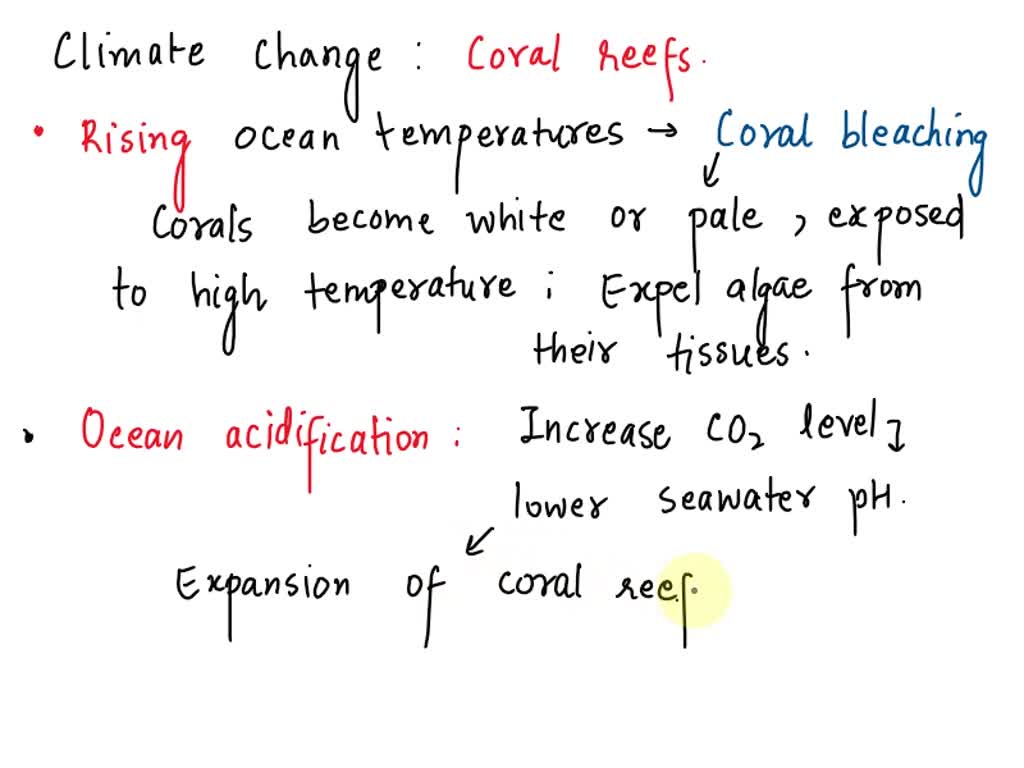 Climate change : Coral reefs.
• Rising ocean temperatures → Coral bleaching
↓
Corals become white or pale, exposed
to high temperature ; Expel algae from
their tissues.
• Ocean acidification : Increase CO₂ level ↓
lower seawater pH.
↙
Expansion of coral reef.